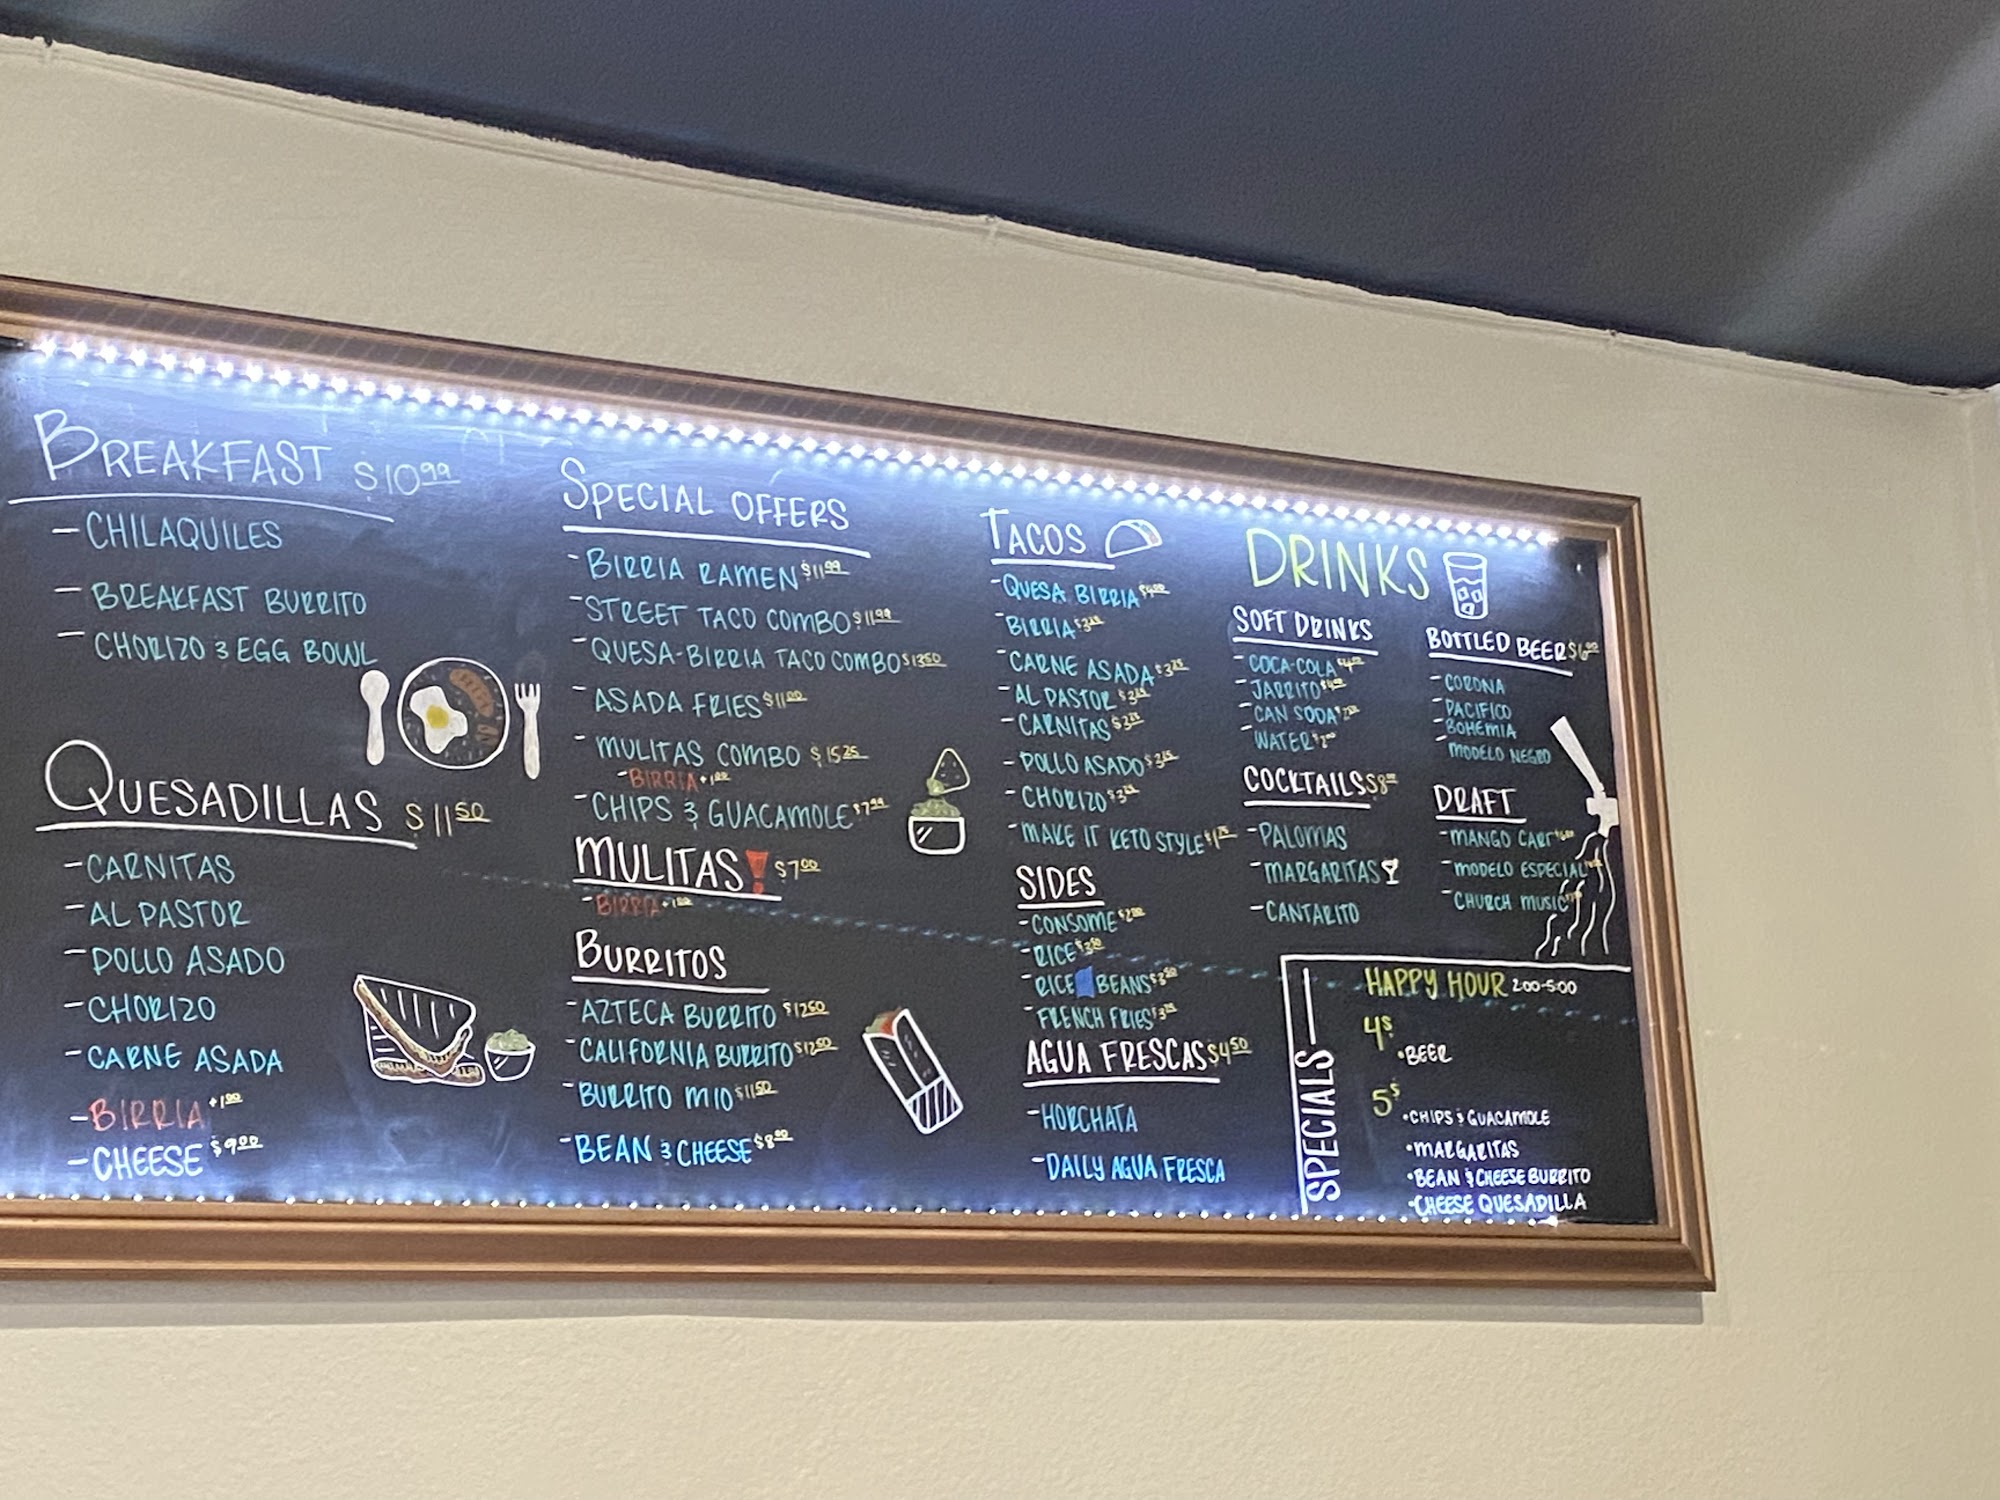 BREAKFAST $10.99
- CHILAQUILES
- BREAKFAST BURRITO
- CHORIZO & EGG BOWL
QUESADILLAS $11.50
- CARNITAS
- AL PASTOR
- POLLO ASADO
- CHORIZO
- CARNE ASADA
- BIRRIA +1.00
- CHEESE $9.00
SPECIAL OFFERS
- BIRRIA RAMEN $11.99
- STREET TACO COMBO $11.99
- QUESA-BIRRIA TACO COMBO $13.50
- ASADA FRIES $11.00
- MULITAS COMBO $15.25
- BIRRIA +1.00
- CHIPS & GUACAMOLE $7.99
MULITAS! $7.00
- BIRRIA +1.00
BURRITOS
- AZTECA BURRITO $12.50
- CALIFORNIA BURRITO $12.50
- BURRITO MIO $11.50
- BEAN & CHEESE $8.00
TACOS
- QUESA BIRRIA $4.00
- BIRRIA
- CARNE ASADA $3.25
- AL PASTOR
- CARNITAS
- POLLO ASADO
- CHORIZO
- MAKE IT KETO STYLE
SIDES
- CONSOME $2.00
- RICE $3.50
- RICE BEANS $3.50
- FRENCH FRIES
AGUA FRESCAS $4.50
- HORCHATA
- DAILY AGUA FRESCA
DRINKS
SOFT DRINKS
- COCA-COLA
- JARRITO
- CAN SODA
- WATER
COCKTAILS $8.00
- PALOMAS
- MARGARITAS
- CANTARITO
BOTTLED BEER $6.00
- CORONA
- PACIFICO
- BOHEMIA
- MODELO NEGRO
DRAFT
- MANGO CART
- MODELO ESPECIAL
- CHURCH MUSIC
SPECIALS
HAPPY HOUR 2:00-5:00
4$
• BEER
5$
• CHIPS & GUACAMOLE
• MARGARITAS
• BEAN & CHEESE BURRITO
• CHEESE QUESADILLA